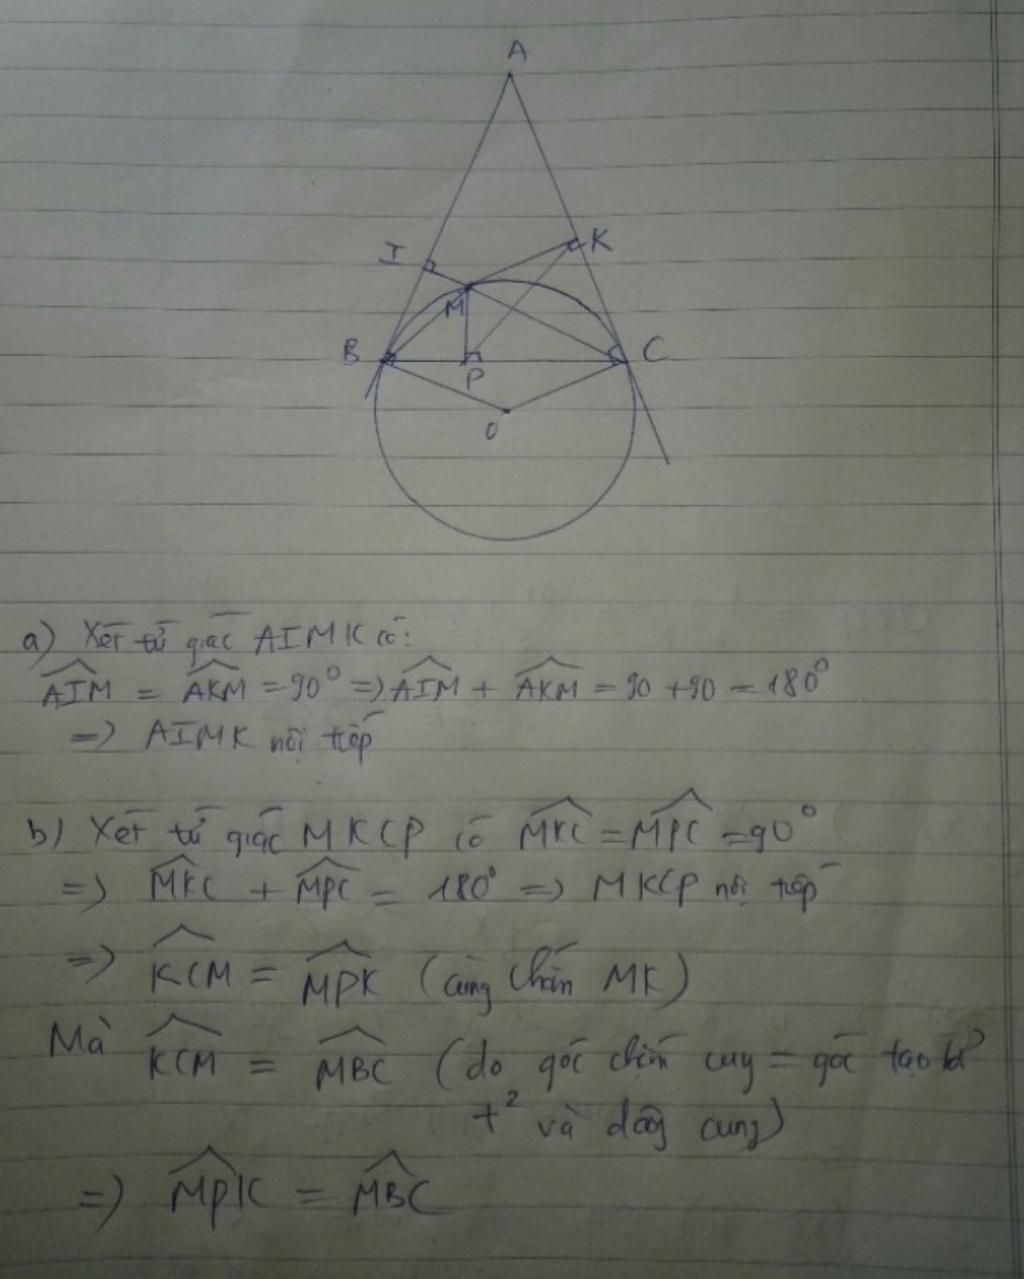 A
I
K
M
B
C
P
O
a) Xét tứ giác AIMK có:
$\widehat{AIM}$ = $\widehat{AKM}$ = 90° => $\widehat{AIM}$ + $\widehat{AKM}$ = 90 + 90 = 180°
=> AIMK nội tiếp
b) Xét tứ giác MKCP có $\widehat{MKC}$ = $\widehat{MPC}$ = 90°
=> $\widehat{MKC}$ + $\widehat{MPC}$ = 180° => MKCP nội tiếp
=> $\widehat{KCM}$ = $\widehat{MPK}$ (cùng chắn MK)
Mà $\widehat{KCM}$ = $\widehat{MBC}$ (do góc chắn cung = góc tạo bởi
t² và dây cung)
=> $\widehat{MPK}$ = $\widehat{MBC}$